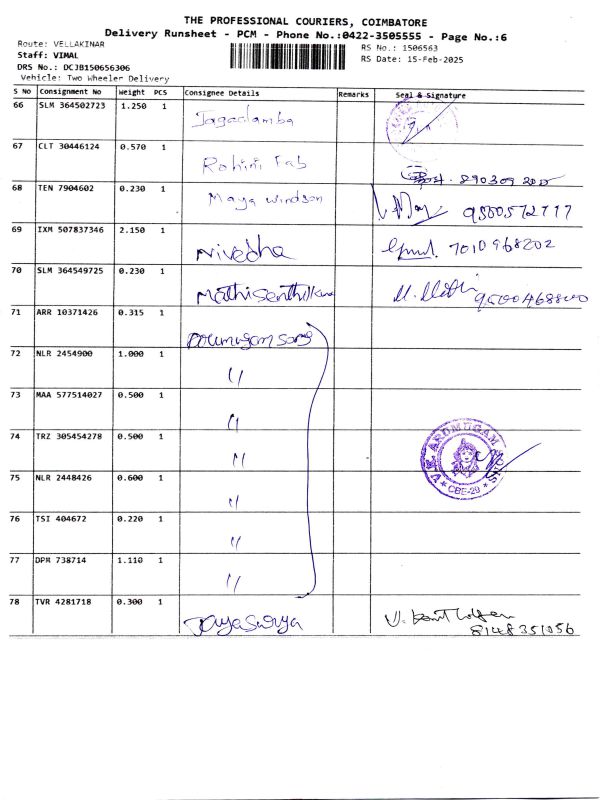 THE PROFESSIONAL COURIERS, COIMBATORE
Delivery Runsheet - PCM - Phone No.:0422-3505555 - Page No.:6
Route: VELLAKINAR
RS No.: 1506563
Staff: VIMAL
RS Date: 15-Feb-2025
DRS No.: DCJB150656306
Vehicle: Two Wheeler Delivery
S No Consignment No Weight PCS Consignee Details Remarks Seal & Signature
66 SLM 364502723 1.250 1 Jagadamba
67 CLT 30446124 0.570 1 Rohini Fab
68 TEN 7904602 0.230 1 Maya windson 9500572777
69 IXM 507837346 2.150 1 Nivedha 7010968202
70 SLM 364549725 0.230 1 Mathisenthilkumar 9500468800
71 ARR 10371426 0.315 1 Aarumugam sons
72 NLR 2454900 1.000 1 "
73 MAA 577514027 0.500 1 "
74 TRZ 305454278 0.500 1 " V.K. AROMUGAM CBE-29
75 NLR 2448426 0.600 1 "
76 TSI 404672 0.220 1 "
77 DPM 738714 1.110 1 "
78 TVR 4281718 0.300 1 Jayasurya 8148351056